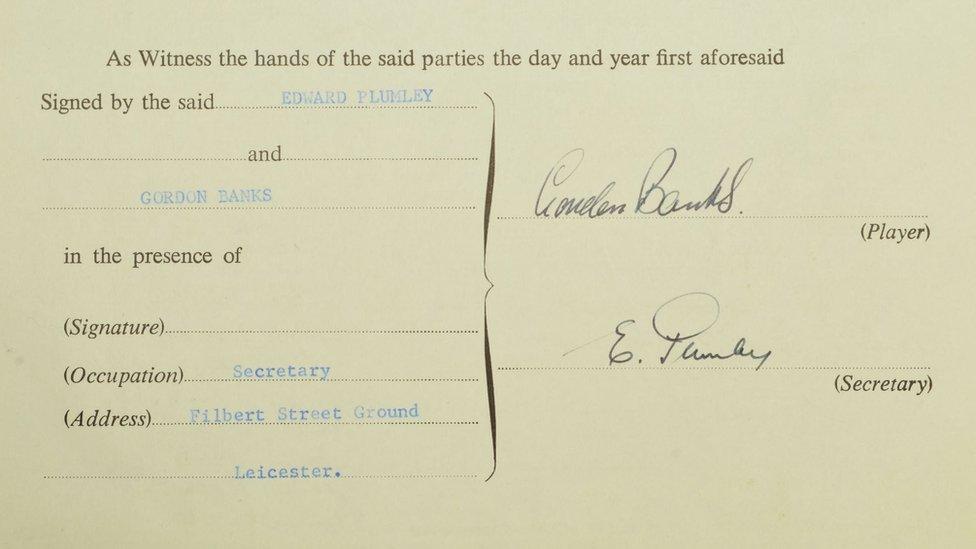 As Witness the hands of the said parties the day and year first aforesaid
Signed by the said EDWARD PLUMLEY
and
GORDON BANKS
in the presence of
Gordon Banks.
(Player)
(Signature)
E. Plumley
(Secretary)
(Occupation) Secretary
(Address) Filbert Street Ground
Leicester.